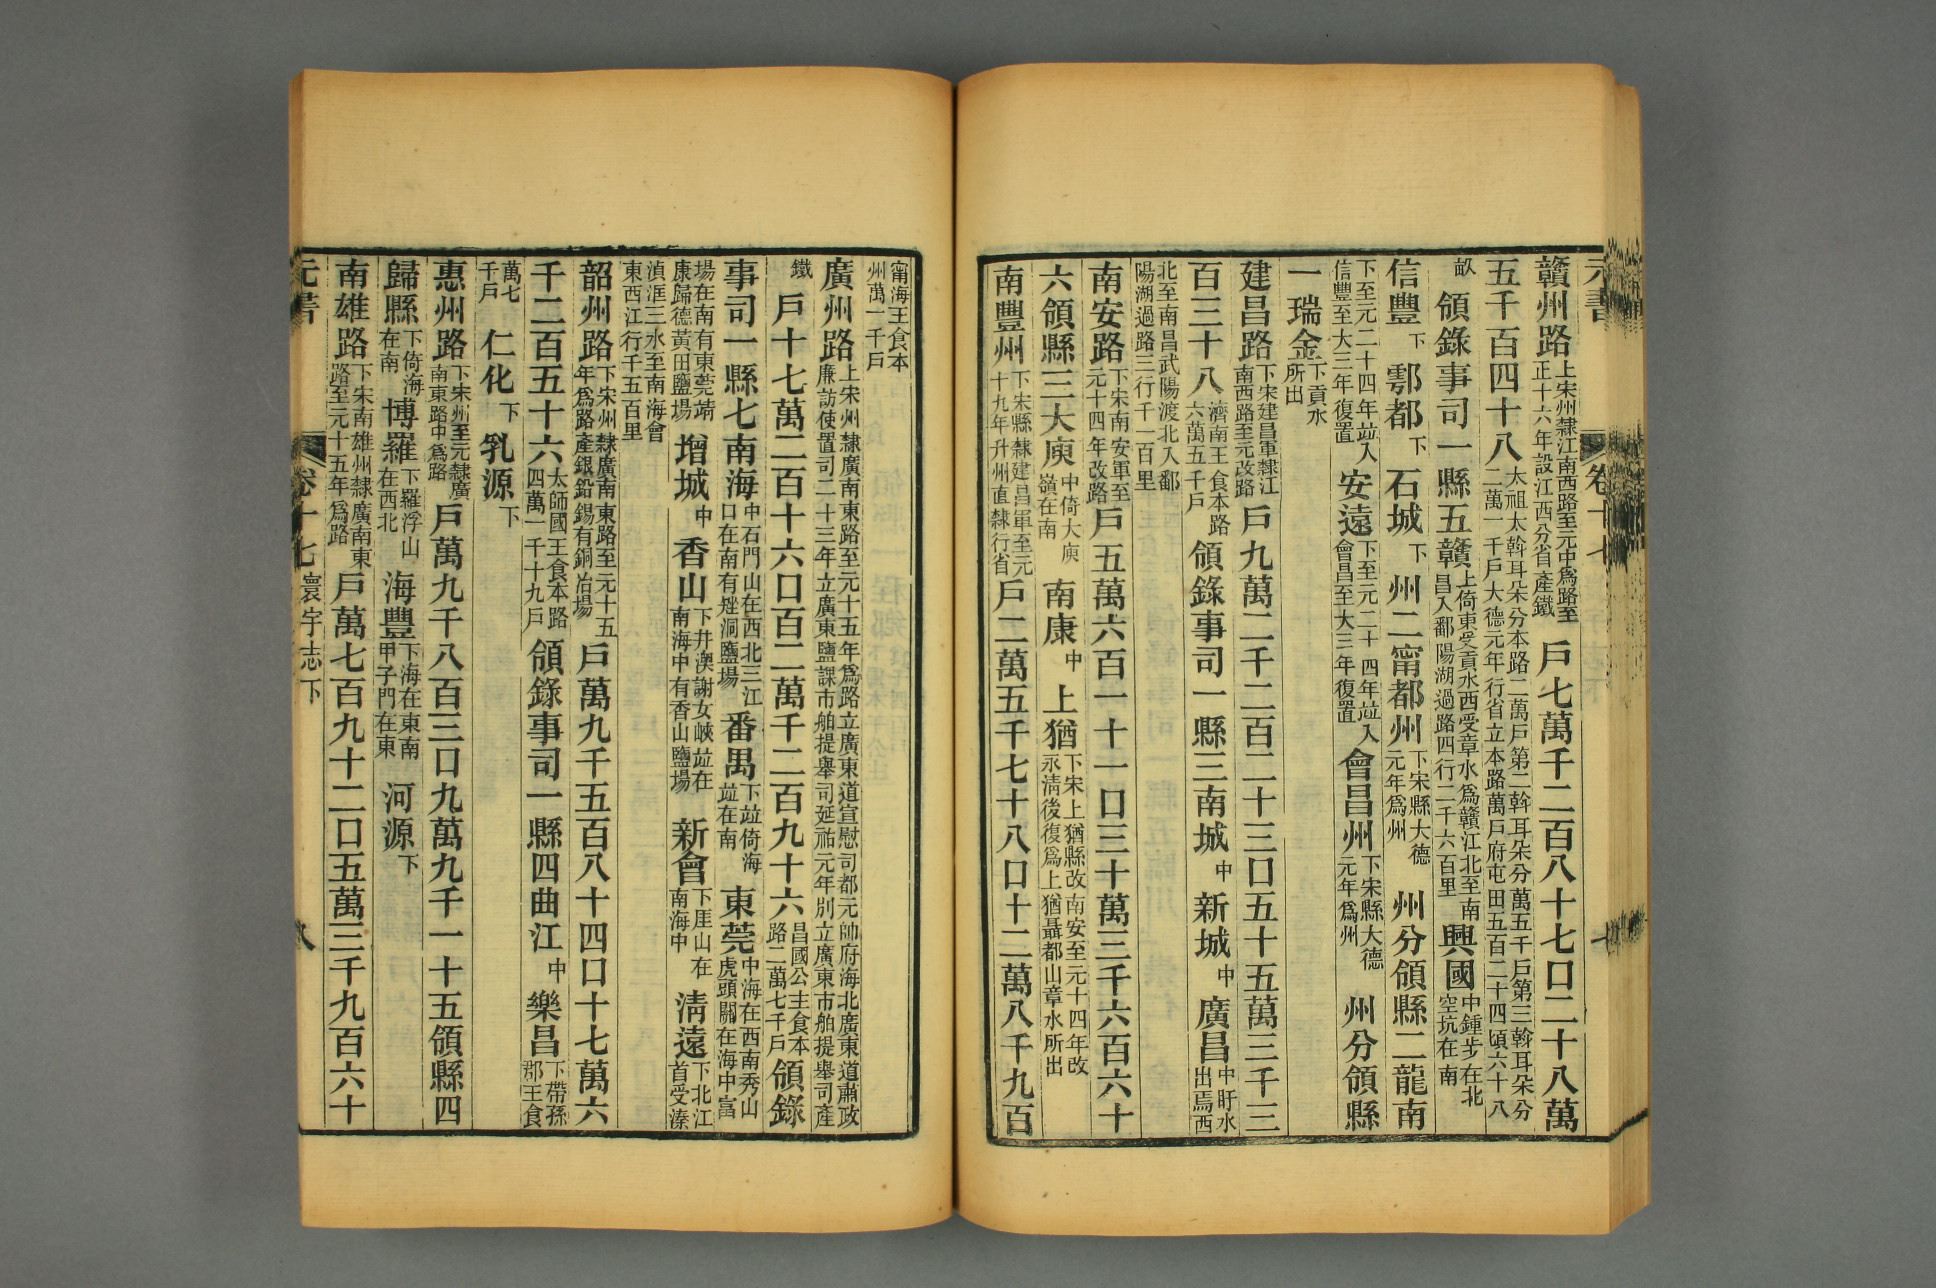 元書 卷十七 七
贛州路上宋州隸江南西路至元中爲路至正十六年設江西分省產鐵 戶七萬千二百八十七口二十八萬
五千百四十八太祖太斡耳朶分本路二萬戶第二斡耳朶分萬五千戶第三斡耳朶分二萬一千戶大德元年行省立本路萬戶府屯田五百二十四頃六十八
畝 領錄事司一縣五贛上倚東受貢水西受章水爲贛江北至南昌入鄱陽湖過路四行二千六百里 興國中鍾步在北空坑在南
信豐下 鄠都下 石城下 州二甯都州下宋縣大德元年爲州 州分領縣二龍南
下至元二十四年竝入信豐至大三年復置 安遠下至元二十四年竝入會昌至大三年復置 會昌州下宋縣大德元年爲州 州分領縣
一瑞金下貢水所出
建昌路下宋建昌軍隸江南西路至元改路 戶九萬二千二百二十三口五十五萬三千三
百三十八濟南王食本路六萬五千戶 領錄事司一縣三南城中 新城中 廣昌中盱水出焉西
北至南昌武陽渡北入鄱陽湖過路三行千一百里
南安路下宋南安軍至元十四年改路 戶五萬六百一十一口三十萬三千六百六十
六領縣三大庾中倚大庾嶺在南 南康中 上猶下宋上猶縣改南安至元十四年改永淸後復爲上猶聶都山章水所出
南豐州下宋縣隸建昌軍至元十九年升州直隸行省 戶二萬五千七十八口十二萬八千九百
甯海王食本州萬一千戶
廣州路上宋州隸廣南東路至元十五年爲路立廣東道宣慰司都元帥府海北廣東道肅政廉訪使置司二十三年立廣東鹽課市舶提舉司延祐元年別立廣東市舶提舉司產
鐵 戶十七萬二百十六口百二萬千二百九十六昌國公主食本路二萬七千戶 領錄
事司一縣七南海中石門山在西北三江口在南有㷟洞鹽場 番禺下竝倚海竝在南 東莞中海在西南秀山虎頭關在海中富
場在南有東莞靖康歸德黃田鹽場 增城中 香山下井澳謝女峽竝在南海中有香山鹽場 新會下厓山在南海中 淸遠下北江首受溱
湞洭三水至南海會東西江行千五百里
韶州路下宋州隸廣南東路至元十五年爲路產銀鉛錫有銅冶場 戶萬九千五百八十四口十七萬六
千二百五十六太師國王食本路四萬一千十九戶 領錄事司一縣四曲江中 樂昌下帶孫郡王食
萬七千戶 仁化下 乳源下
惠州路下宋州至元隸廣南東路中爲路 戶萬九千八百三口九萬九千一十五領縣四
歸縣下倚海在南 博羅下羅浮山在西北 海豐下海在東南甲子門在東 河源下
南雄路下宋南雄州隸廣南東路至元十五年爲路 戶萬七百九十二口五萬三千九百六十
元書 卷十七 寰宇志下 八